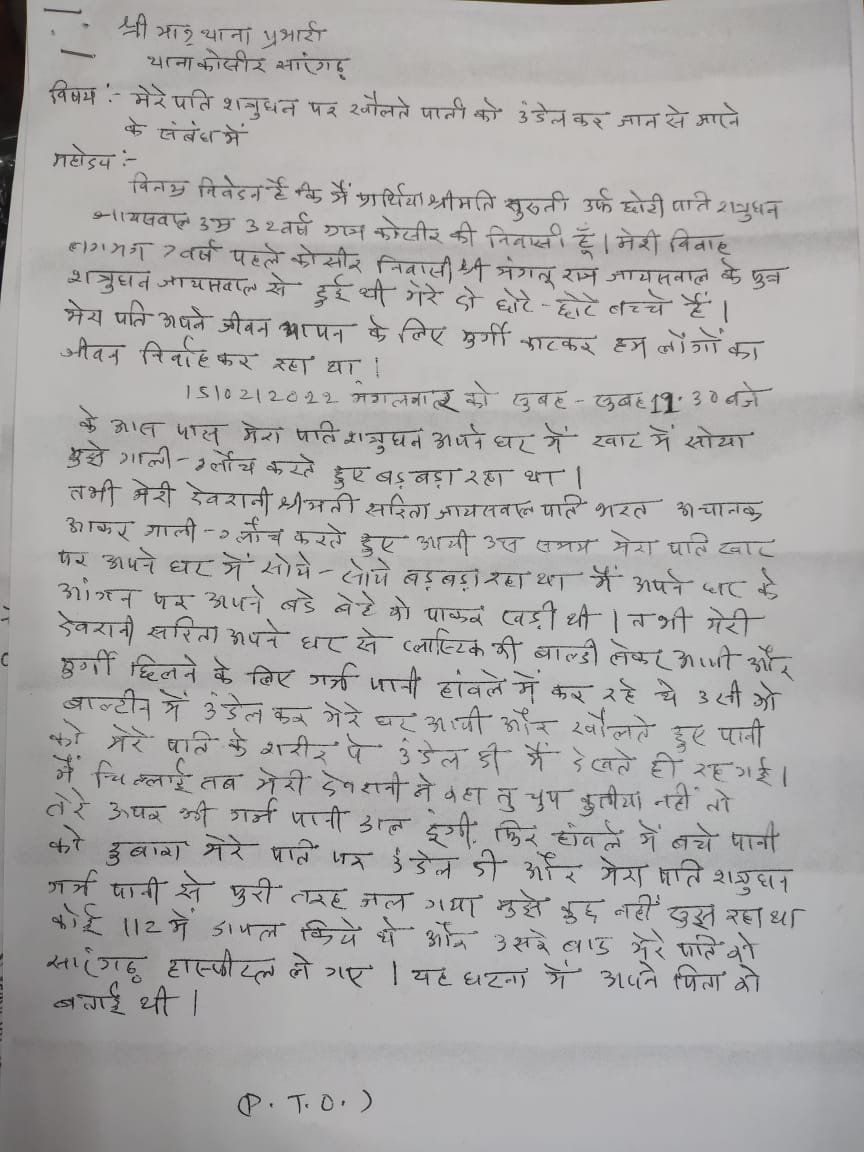 श्री मान् थाना प्रभारी
थाना कोसीर सांरगढ़
विषय :- मेरे पति शत्रुधन पर खौलते पानी को उंडेल कर जान से मारने
के संबंध में
महोदय :-
विनम्र निवेदन है कि मैं प्रार्थिया श्रीमति सुरुती उर्फ छोटी पति शत्रुधन
जायसवाल उम्र 32 वर्ष ग्राम कोसीर की निवासी हूँ । मेरी विवाह
लगभग 7 वर्ष पहले कोसीर निवासी श्री मंगलू राम जायसवाल के पुत्र
शत्रुधन जायसवाल से हुई थी मेरे दो छोटे - छोटे बच्चे हैं ।
मेरा पति अपने जीवन यापन के लिए मुर्गी काटकर हम लोंगों का
जीवन निर्वाह कर रहा था ।
15/02/2022 मंगलवार को सुबह - सुबह 11.30 बजे
के आस पास मेरा पति शत्रुधन अपने घर में खाट में सोया
मुझे गाली - ग्लौच करते हुए बड़बड़ा रहा था ।
तभी मेरी देवरानी श्रीमती सरिता जायसवाल पति भरत अचानक
आकर गाली - ग्लौच करते हुए आयी उस समय मेरा पति खाट
पर अपने घर में सोये - सोये बड़बड़ा रहा था मैं अपने घर के
आंगन पर अपने बडे बेटे को पाकर खड़ी थी । तभी मेरी
देवरानी सरिता अपने घर से प्लास्टिक की बाल्टी लेकर आयी और
मुर्गी छिलने के लिए गर्म पानी हांवले में कर रहे थे उसी को
बाल्टीन में उंडेल कर मेरे घर आयी और खौलते हुए पानी
को मेरे पति के शरीर पे उंडेल दी मैं देखते ही रह गई ।
मैं चिल्लाई तब मेरी देवरानी ने कहा तु चुप कुतीया नहीं तो
तेरे ऊपर भी गर्म पानी डाल दूंगी, फिर हांवले में बचे पानी
को दुबारा मेरे पति पर उंडेल दी और मेरा पति शत्रुधन
गर्म पानी से पुरी तरह जल गया मुझे कुछ नहीं सुझ रहा था
कोई 112 में डायल किये थे और उसके बाद मेरे पति को
सांरगढ़ हास्पीटल ले गए । यह घटना मैं अपने पिता को
बताई थी ।
(P. T. O.)